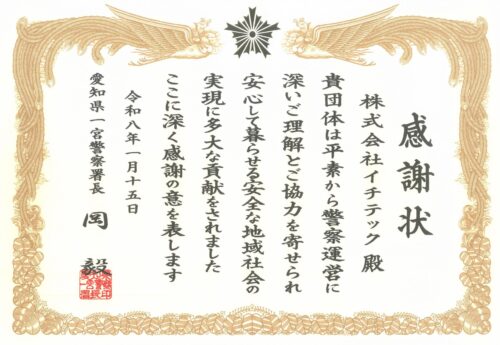 感謝状
株式会社イチテック 殿
貴団体は平素から警察運営に
深いご理解とご協力を寄せられ
安心して暮らせる安全な地域社会の
実現に多大な貢献をされました
ここに深く感謝の意を表します
令和八年一月十五日
愛知県一宮警察署長 岡 毅